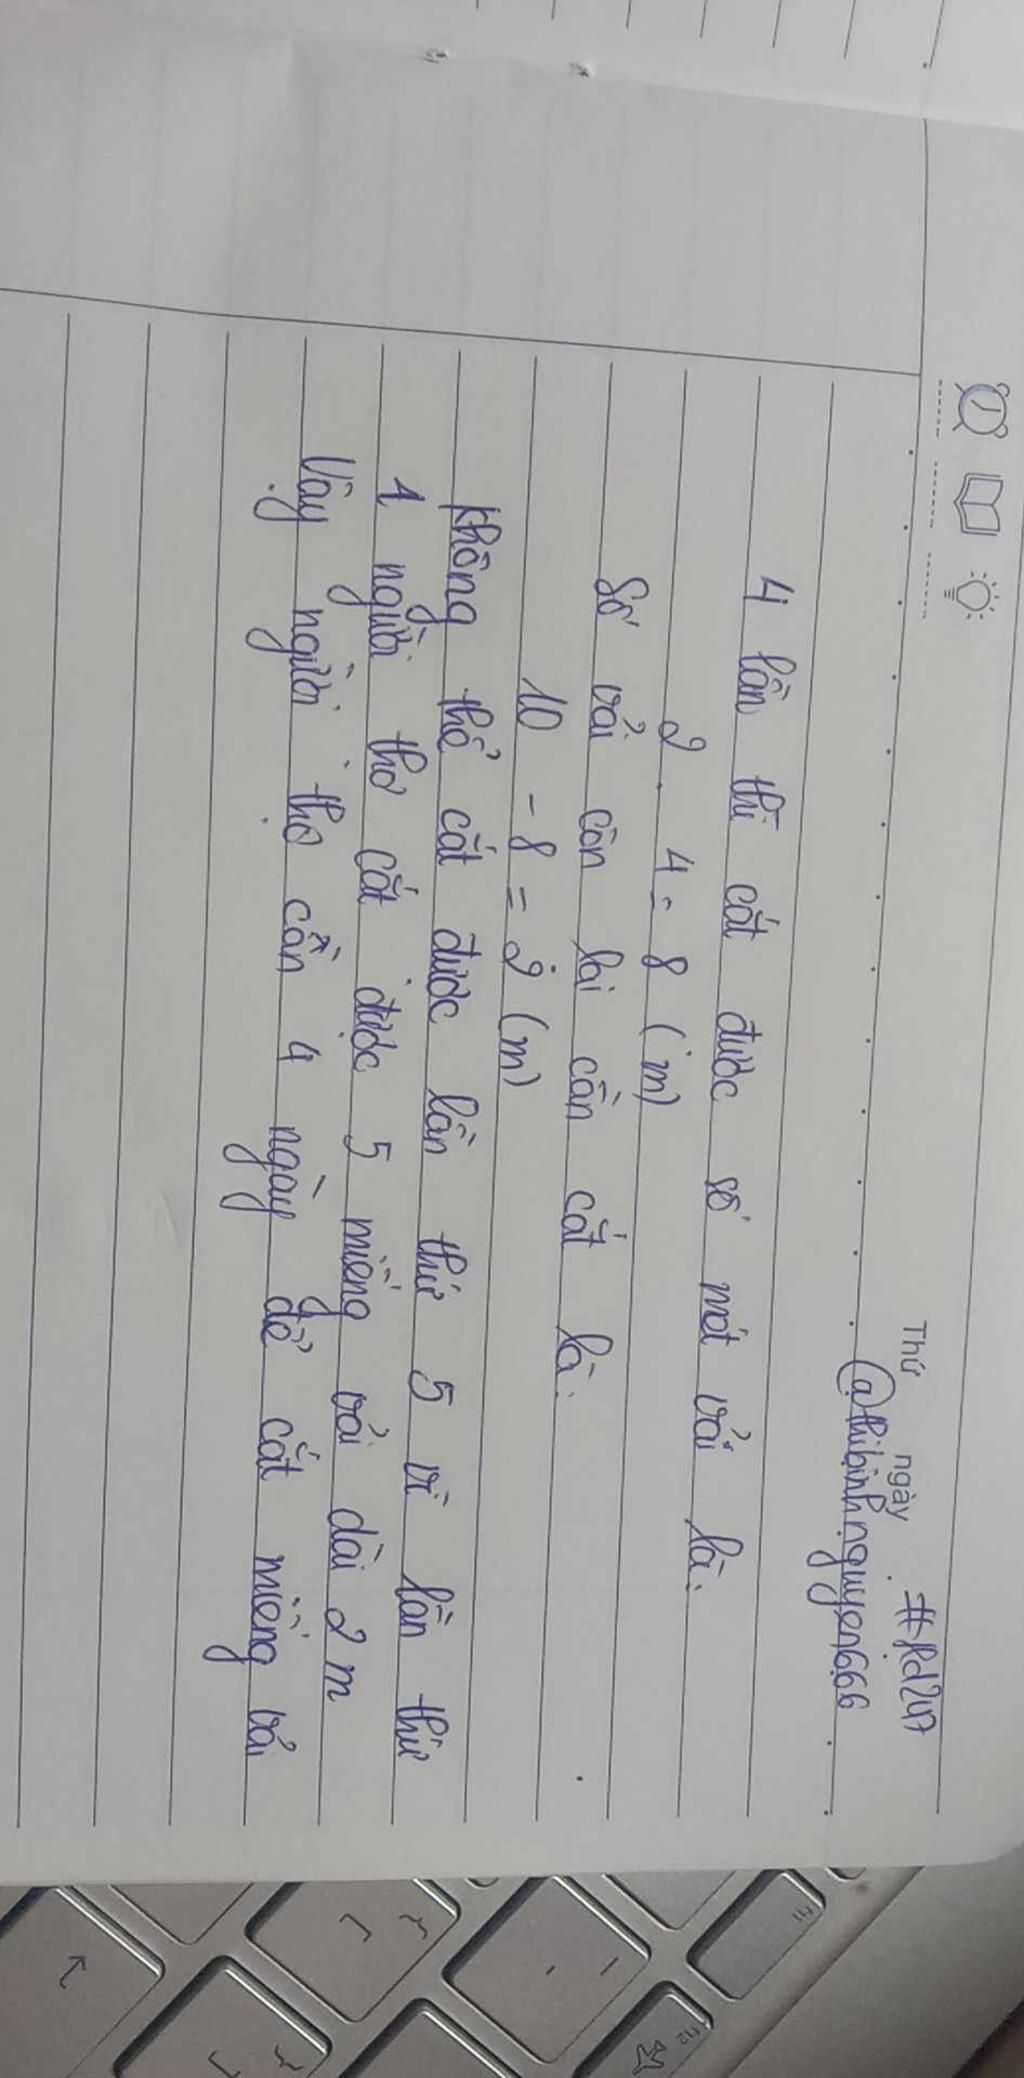 Thứ ngày #Rd247
@thibinhnguyen666
4 lần thì cắt được số mét vải là:
2 . 4 = 8 (m)
Số vải còn lại cần cắt là:
10 - 8 = 2 (m)
Không thể cắt được lần thứ 5 vì lần thứ
4 người thợ cắt được 5 miếng vải dài 2 m
Vậy người thợ cần 4 ngày để cắt miếng vải
F11
F12